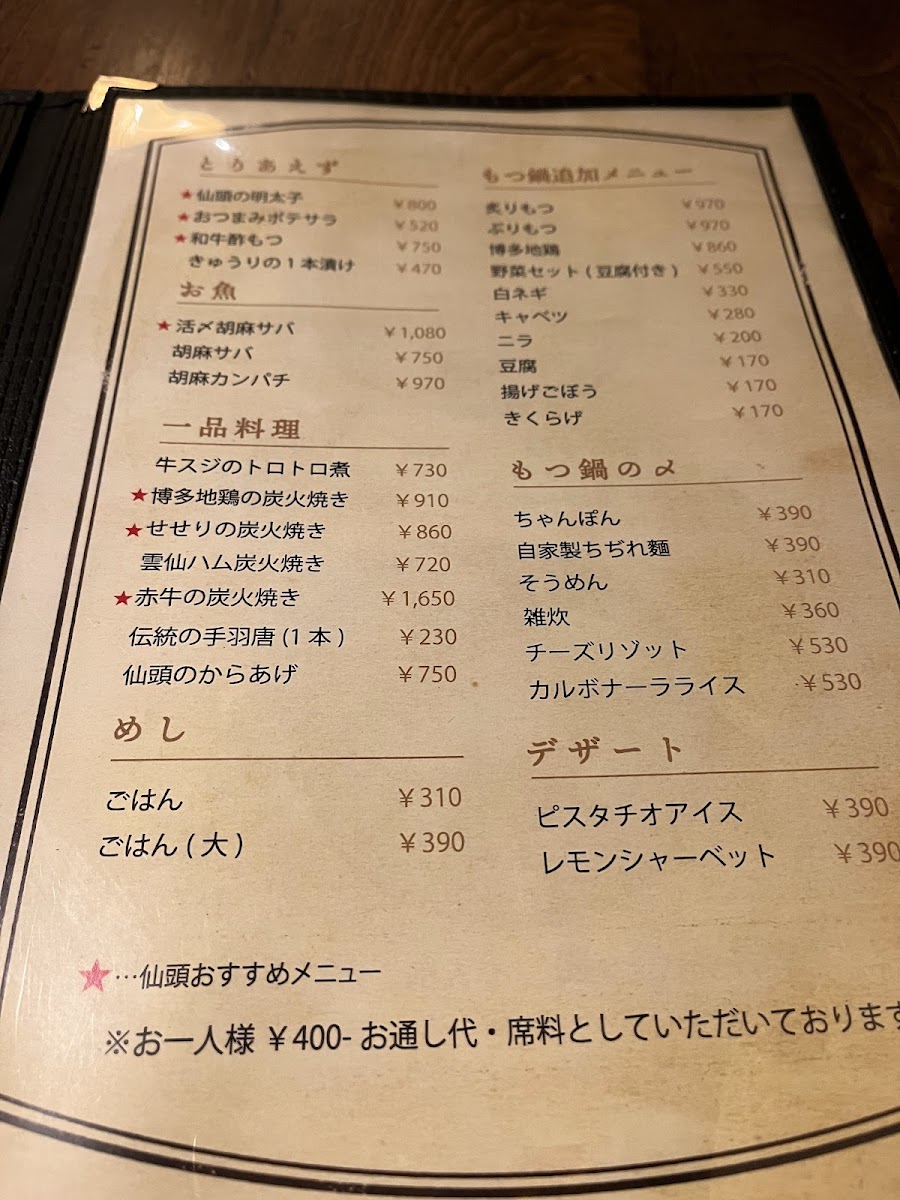 とりあえず
★仙頭の明太子 ¥800
★おつまみポテサラ ¥520
★和牛酢もつ ¥750
きゅうりの1本漬け ¥470
お魚
★活〆胡麻サバ ¥1,080
胡麻サバ ¥750
胡麻カンパチ ¥970
一品料理
牛スジのトロトロ煮 ¥730
★博多地鶏の炭火焼き ¥910
★せせりの炭火焼き ¥860
雲仙ハム炭火焼き ¥720
★赤牛の炭火焼き ¥1,650
伝統の手羽唐(1本) ¥230
仙頭のからあげ ¥750
めし
ごはん ¥310
ごはん(大) ¥390
もつ鍋追加メニュー
炙りもつ ¥970
ぷりもつ ¥970
博多地鶏 ¥860
野菜セット(豆腐付き) ¥550
白ネギ ¥330
キャベツ ¥280
ニラ ¥200
豆腐 ¥170
揚げごぼう ¥170
きくらげ ¥170
もつ鍋の〆
ちゃんぽん ¥390
自家製ちぢれ麺 ¥390
そうめん ¥310
雑炊 ¥360
チーズリゾット ¥530
カルボナーラライス ¥530
デザート
ピスタチオアイス ¥390
レモンシャーベット ¥390
★…仙頭おすすめメニュー
※お一人様 ¥400- お通し代・席料としていただいております